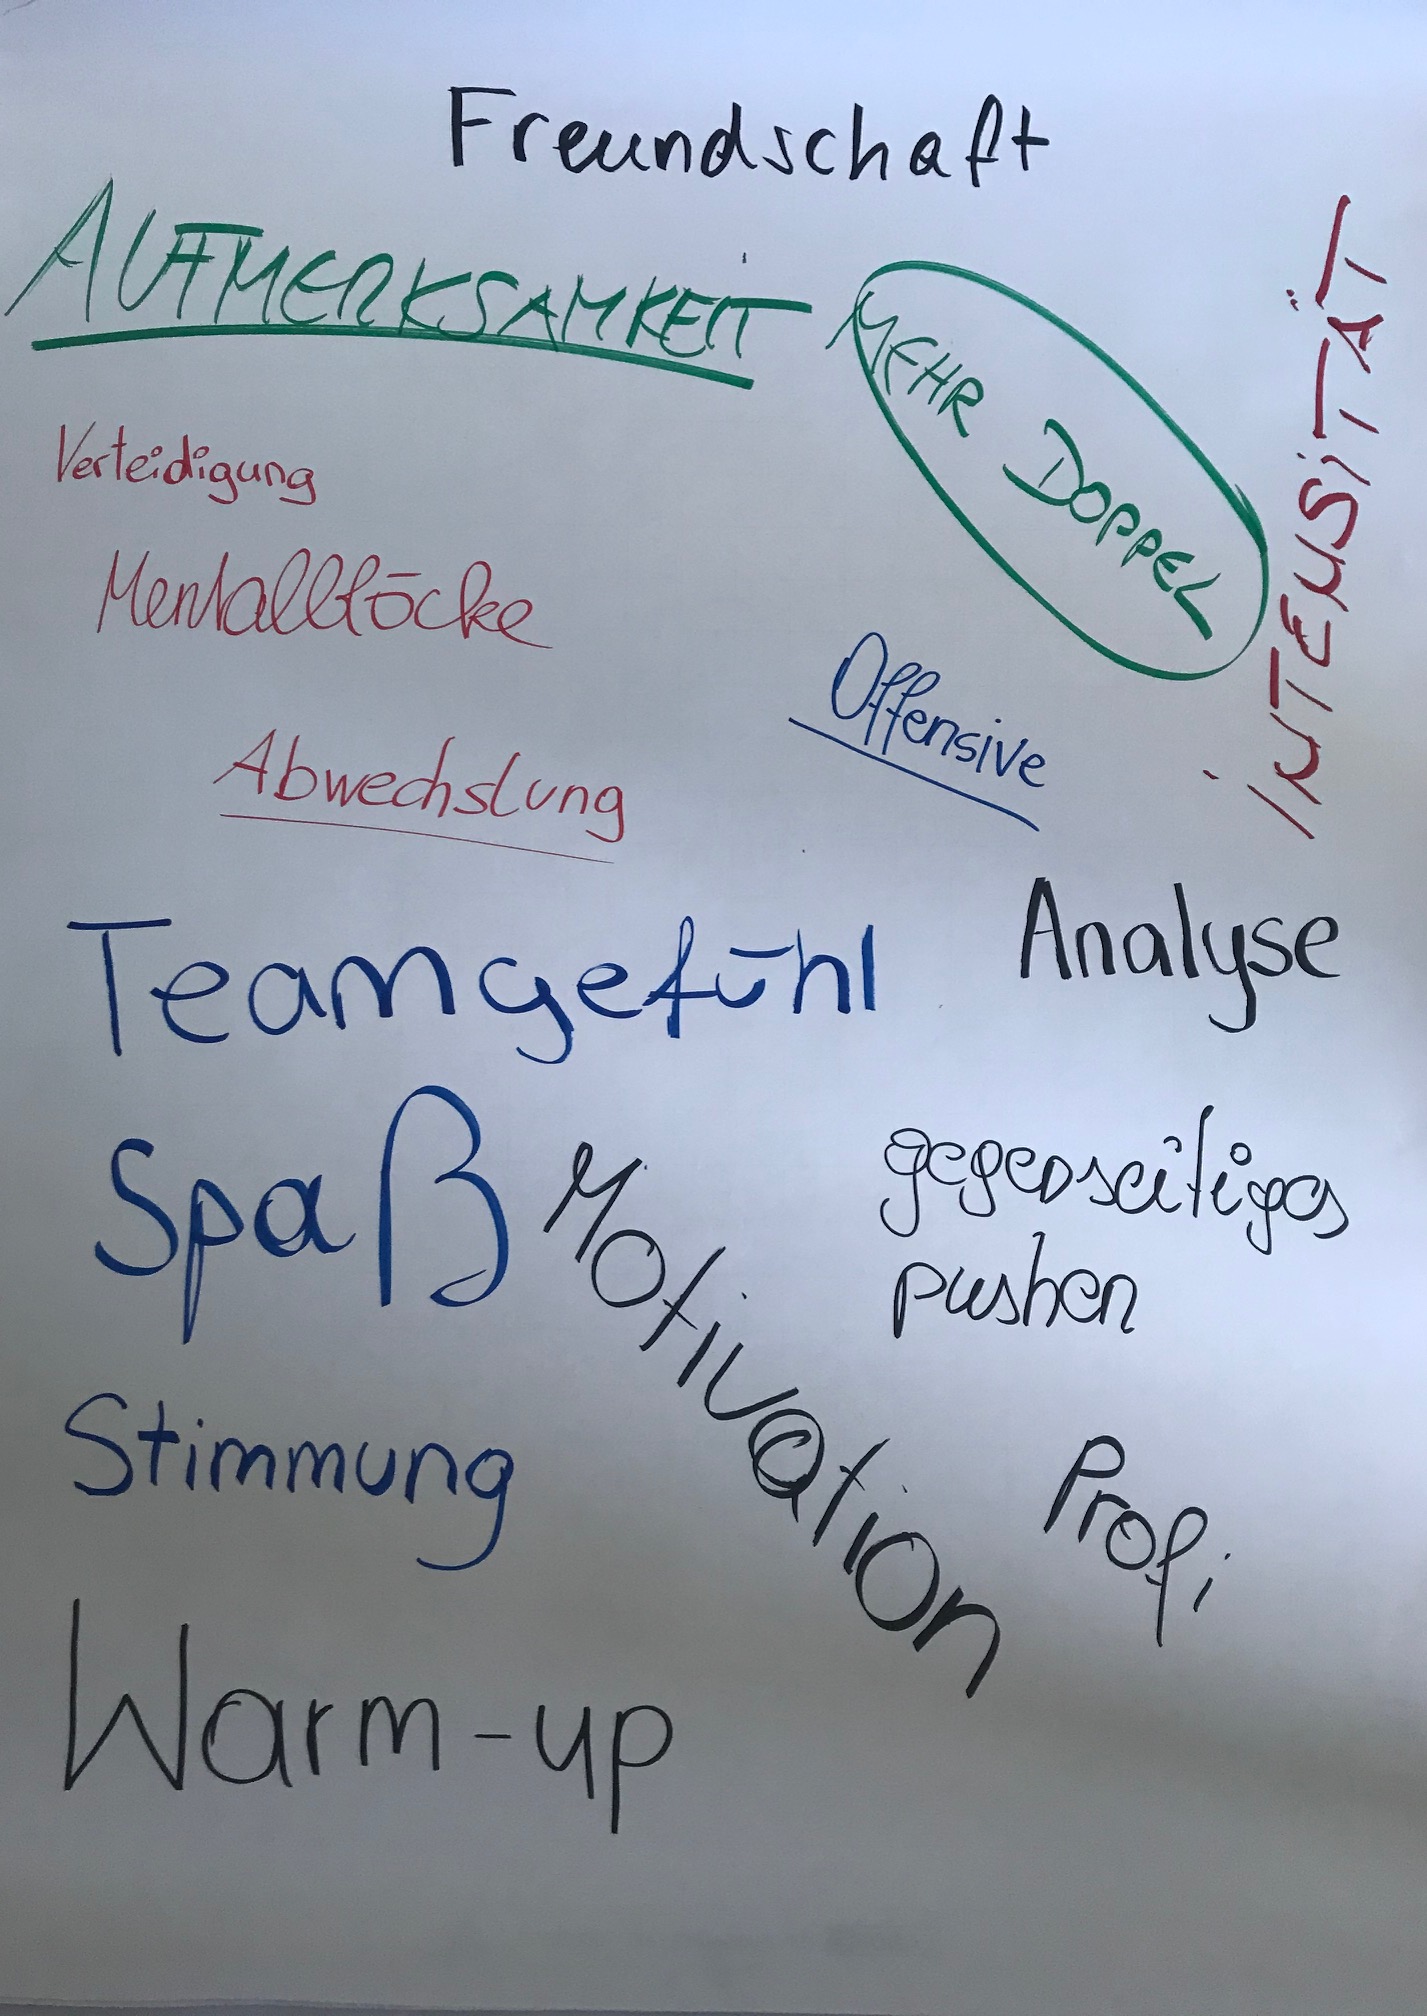 Freundschaft
AUFMERKSAMKEIT
MEHR DOPPEL
INTENSITÄT
Verteidigung
Mentalblöcke
Offensive
Abwechslung
Analyse
Teamgefühl
Spaß
Motivation
gegenseitiges
pushen
Stimmung
Profi
Warm-up